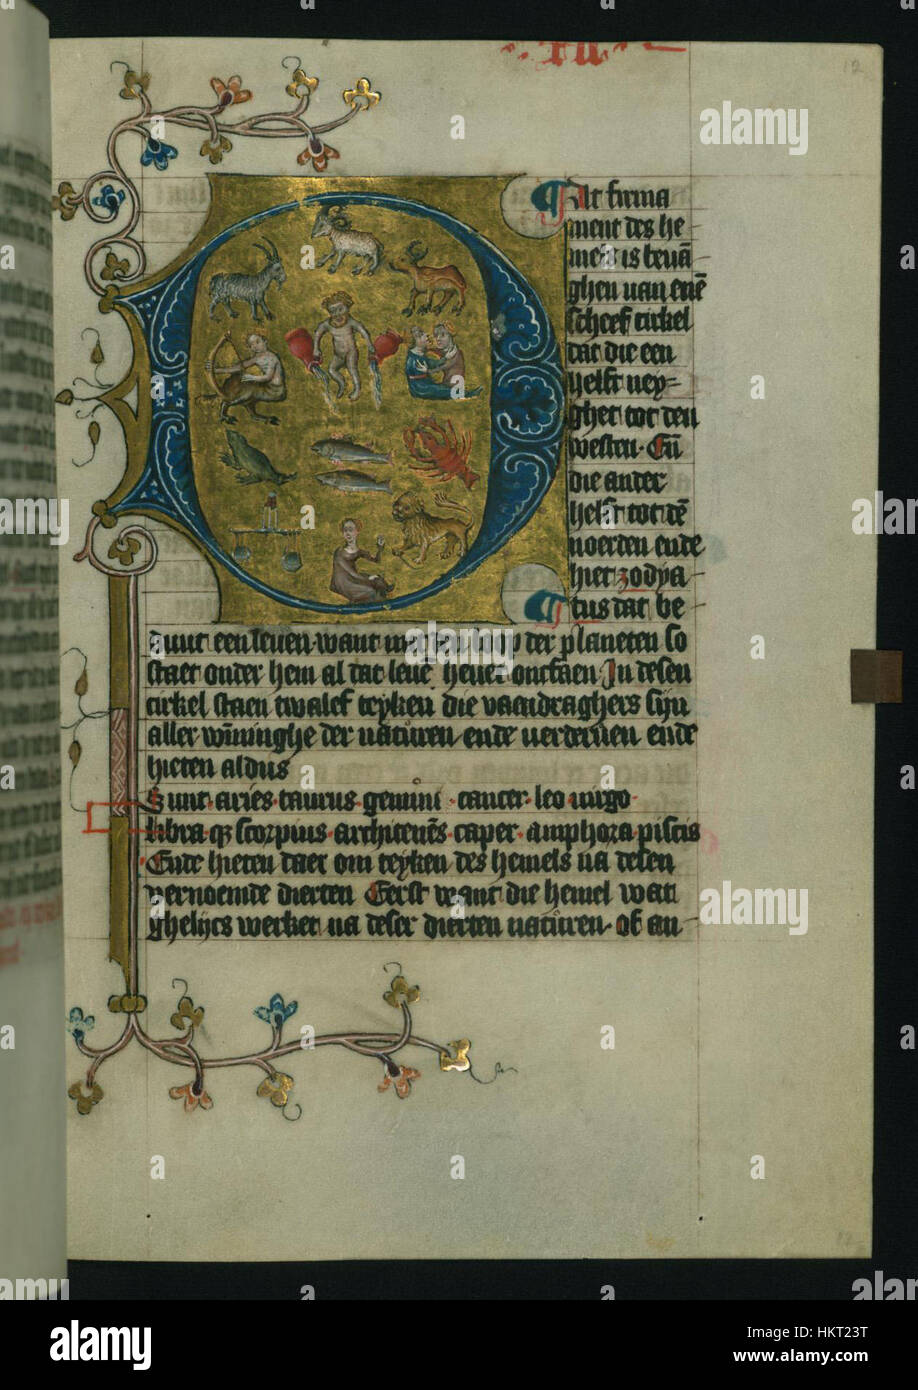 12
Dat firma
ment des he
mels is beuā
ghen van enē
scheef cirkel
dat die een
helft ney=
ghet tot den
westen. En̄
die ander
helft tot dē
noerden ende
hiet zodya
tus dat be
duut een leuen want loop der planeten so
staet onder hem al dat leuē heuet ontfaen In desen
cirkel staen twalef teyken die vaendraghers sijn
aller der naturen ende verderuen ende
hieten aldus
Sunt aries taurus gemini cancer leo uirgo
libra qꝫ scorpius architenēs caper amphora piscis
Ende hieten daer om teyken des hemels na desen
vernoemde dierten Eerst want die hemel wan
ghelijcs werket na deser dierten naturen of an
12
alamy
Image ID: HKT23T
www.alamy.com